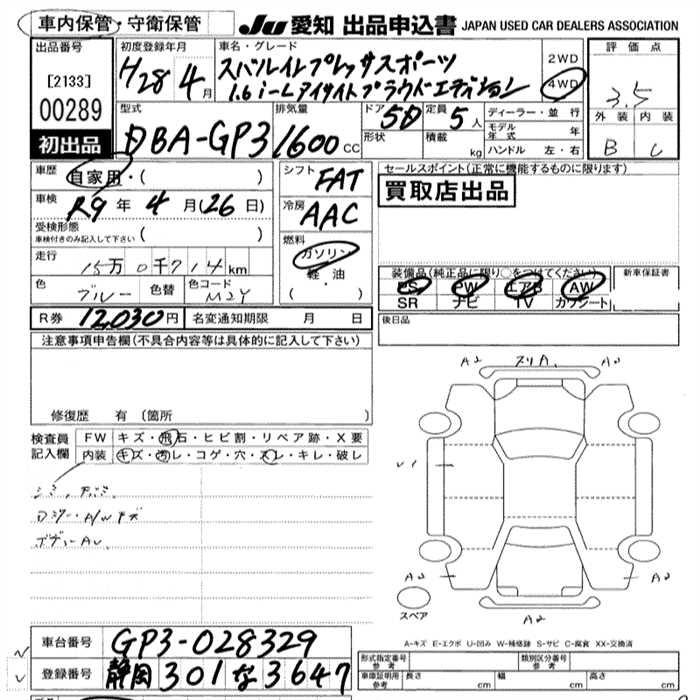 車内保管・守衛保管 JU 愛知 出品申込書 JAPAN USED CAR DEALERS ASSOCIATION
出品番号
[2133]
00289
初出品
初度登録年月 車名・グレード
H28年 4月
スバルインプレッサスポーツ
1.6i-Lアイサイトプラウドエディション
2WD
4WD
評価点
3.5
外装 内装
B C
型式 排気量 ドア 定員
DBA-GP3 1600cc 5D 5人
形状 積載 kg
ディーラー・並行
モデル年式 年
ハンドル 左・右
車歴
自家用・( )
車検
R9年 4月(26日)
受検形態
車検付きのみ記入して下さい ( )
走行
15万0千714km
色 ブルー 色替 色コード M2Y
シフト FAT
冷房 AAC
燃料
ガソリン
軽・油
( ・ )
セールスポイント(正常に機能するものに限ります)
買取店出品
装備品(純正品に限り○をつけてください) 新車保証書
PS PW エアB AW
SR ナビ TV カワシート
R券 12,030円 名変通知期限 月 日
後日品
注意事項申告欄(不具合内容等は具体的に記入して下さい)
修復歴 有 (箇所
検査員記入欄
FW キズ・飛石・ヒビ割・リペア跡・X要
内装 キズ・汚レ・コゲ・穴・スレ・キレ・破レ
A2 スリA
U1
A2 A2
A2
スペア
A-キズ E-エクボ U-凹み W-補修跡 S-サビ C-腐食 XX-交換済
車台番号 GP3-028329
登録番号 静岡 301 な 3647
形式指定番号 参考 類別区分番号 参考
車庫証明用 参考 長さ cm 幅 cm 高さ cm